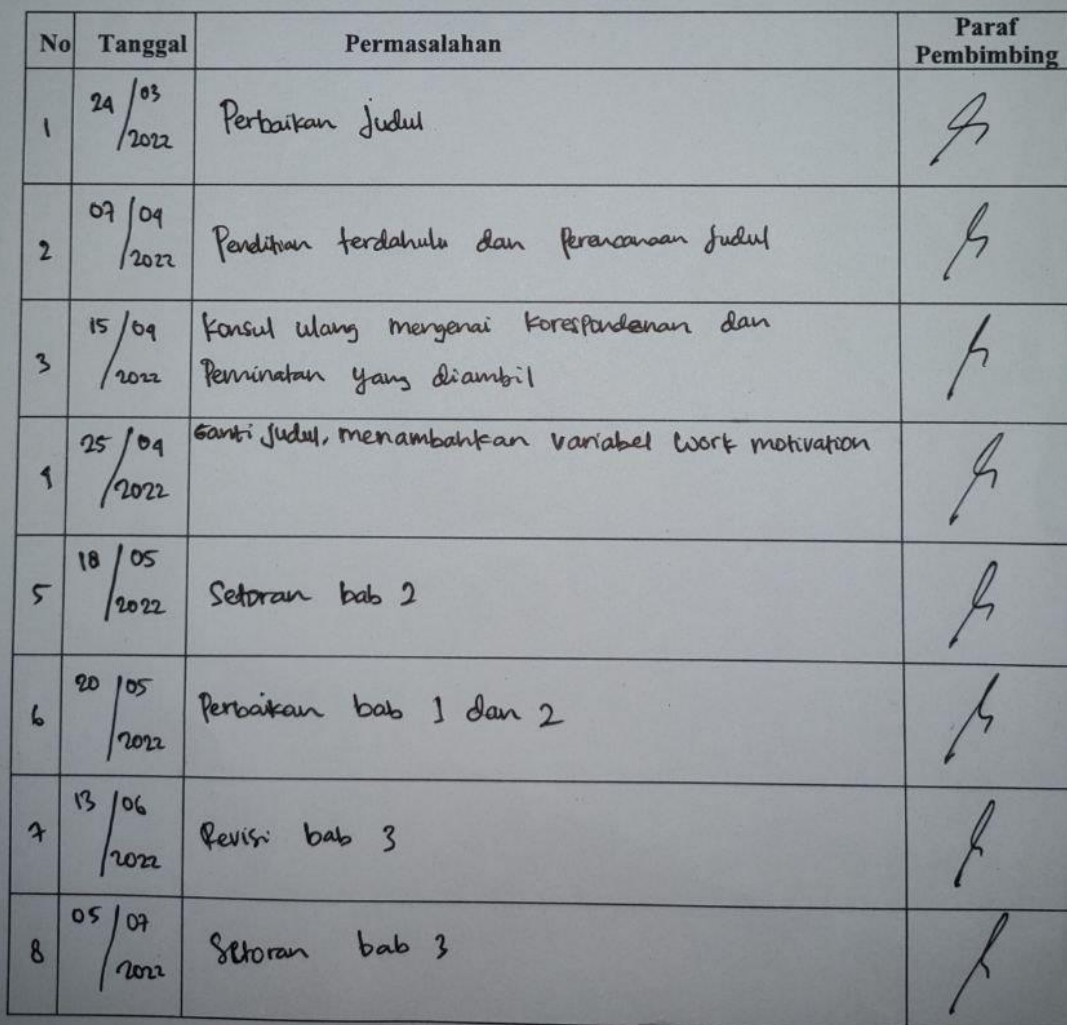 No Tanggal Permasalahan Paraf
Pembimbing
1 24/03/2022 Perbaikan Judul
2 07/04/2022 Penelitian terdahulu dan Perencanaan Judul
3 15/04/2022 Konsul ulang mengenai korespondenan dan
Peminatan yang diambil
4 25/04/2022 Ganti Judul, menambahkan variabel work motivation
5 18/05/2022 Setoran bab 2
6 20/05/2022 Perbaikan bab 1 dan 2
7 13/06/2022 Revisi bab 3
8 05/07/2022 Setoran bab 3